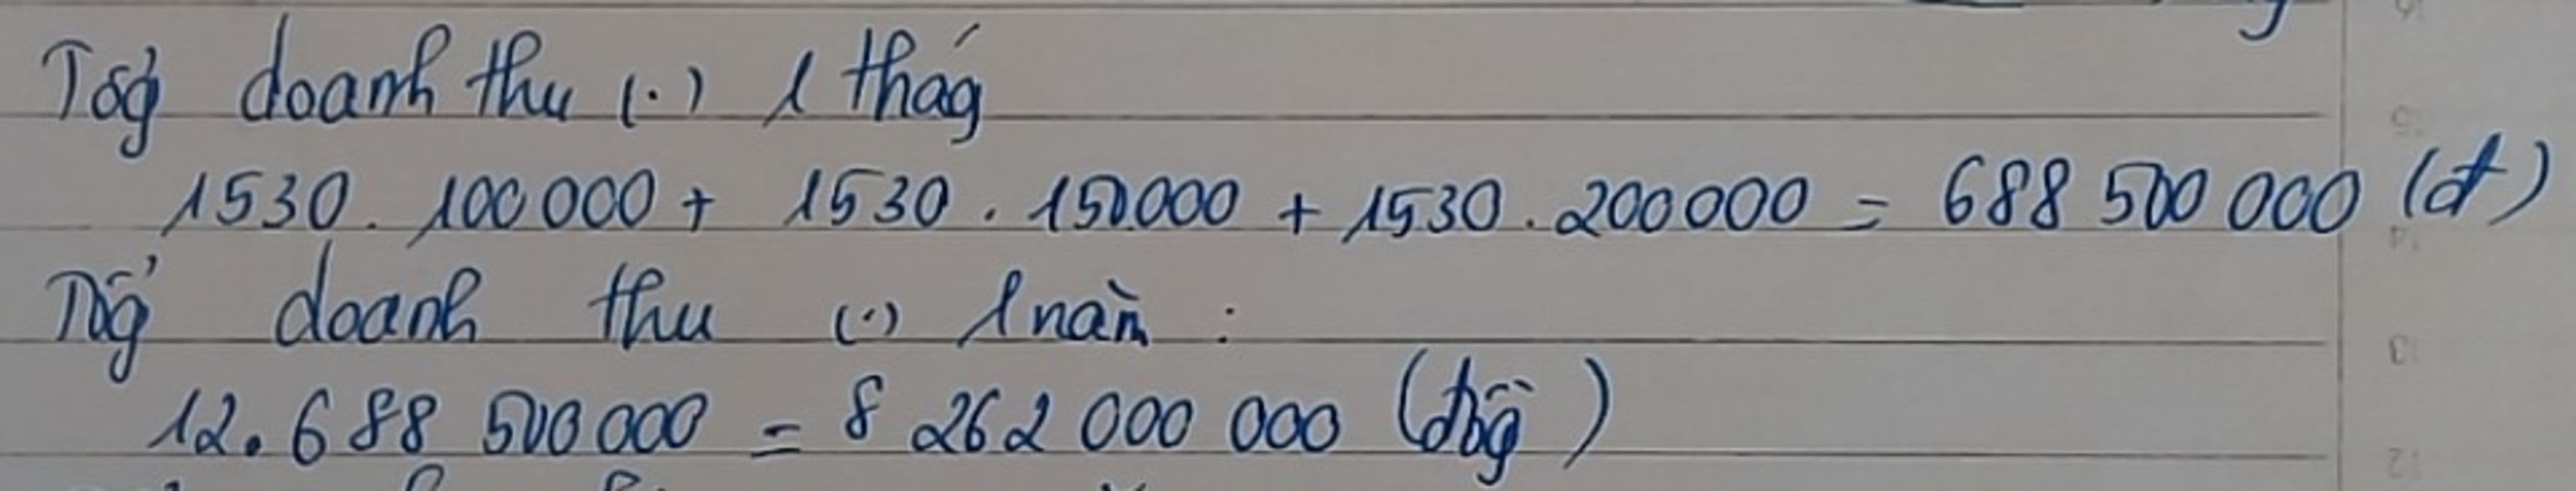 Tổg doanh thu (.) 1 thág
1530. 100 000 + 1530 . 150.000 + 1530 . 200 000 = 688 500 000 (đ)
Tổg doanh thu (.) 1 năm :
12. 688 500 000 = 8 262 000 000 (đồg)